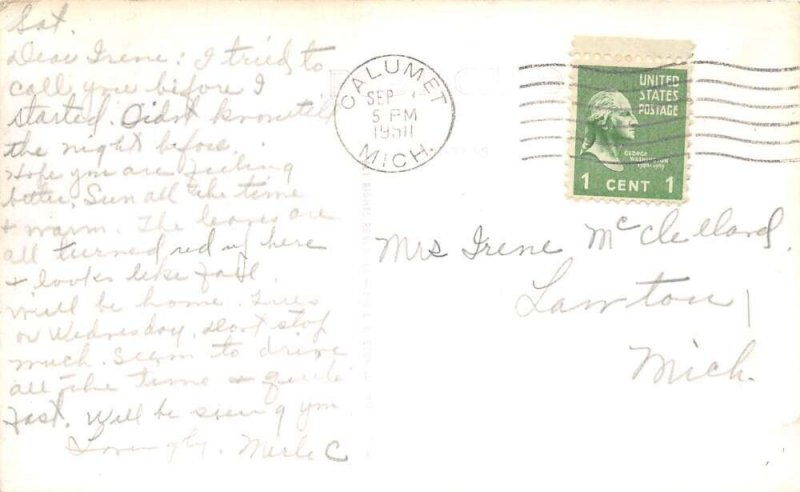 Sat.
Dear Irene: I tried to
call you before I
started. Didnt know till
the night before.
Hope you are feeling
better. Sun all the time
+ warm. The leaves are
all turned red up here
+ looks like fall.
Will be home Tues
or Wednesday. Dont stop
much. Seem to drive
all the time + quite
fast. Will be seeing you
Lovingly, Merle C
CALUMET
SEP
5 PM
MICH.
UNITED
STATES
POSTAGE
GEORGE
WASHINGTON
1 CENT 1
Mrs Irene McClelland.
Lawton
Mich.